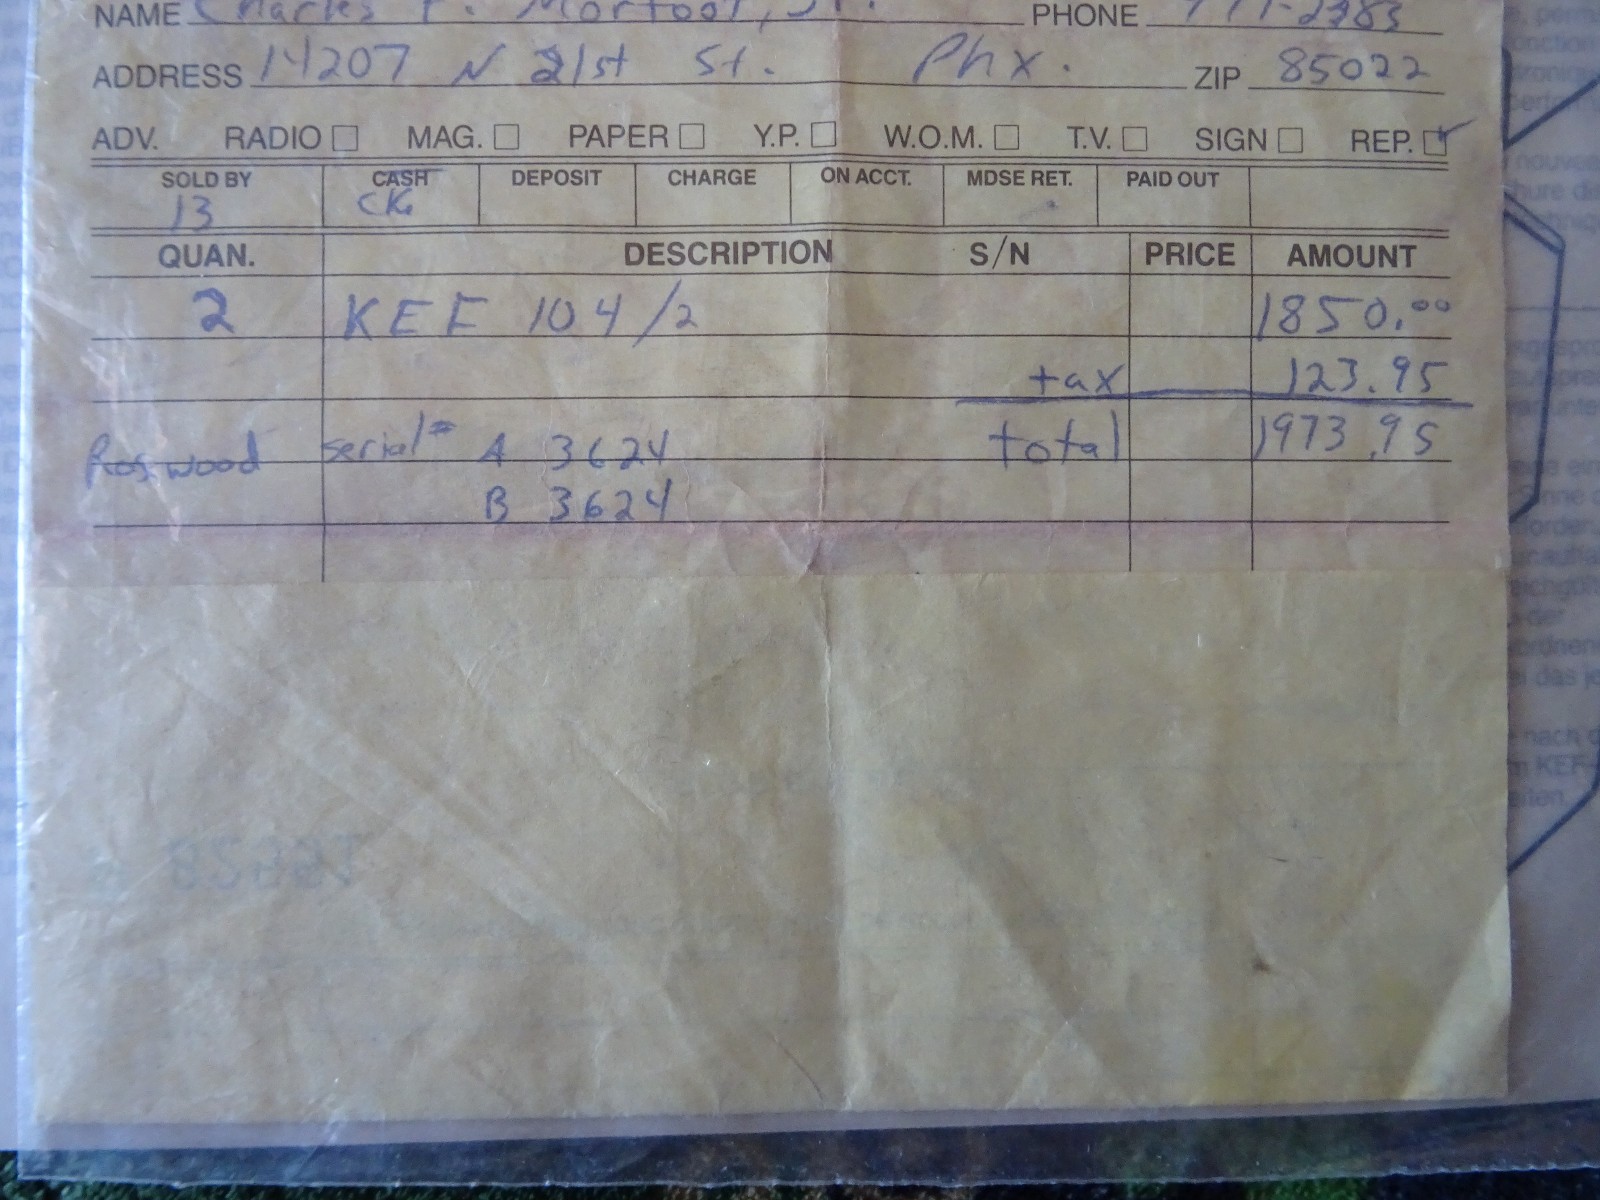 NAME Charles F. Morfoot, Jr. PHONE
ADDRESS 14207 N 21st St. Phx. ZIP 85022
ADV. RADIO MAG. PAPER Y.P. W.O.M. T.V. SIGN REP.
SOLD BY CASH DEPOSIT CHARGE ON ACCT. MDSE RET. PAID OUT
13 CK.
QUAN. DESCRIPTION S/N PRICE AMOUNT
2 KEF 104/2 1850.00
tax 123.95
Roswood serial# A 3624 total 1973.95
B 3624
nach
KEF